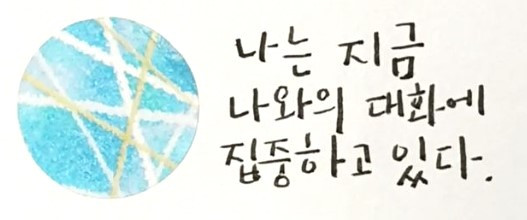 나는 지금
나와의 대화에
집중하고 있다.